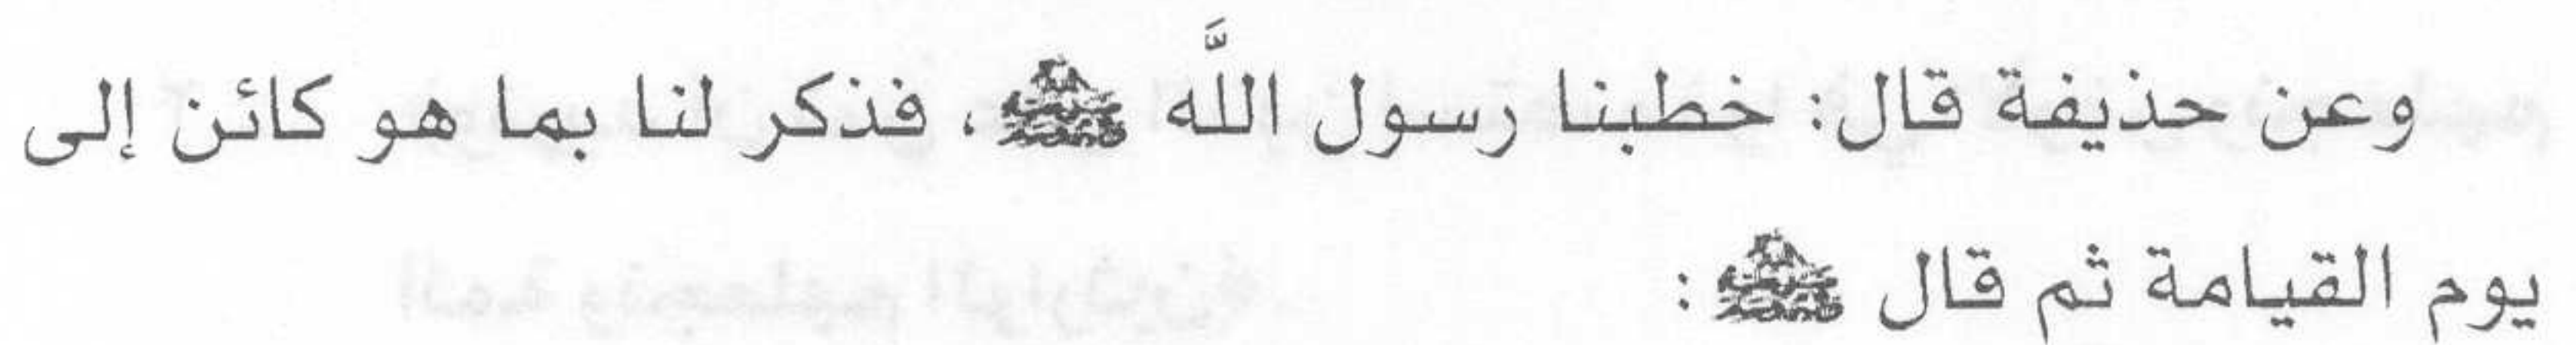 وعن حذيفة قال: خطبنا رسول اللَّه ﷺ، فذكر لنا بما هو كائن إلى
يوم القيامة ثم قال ﷺ: